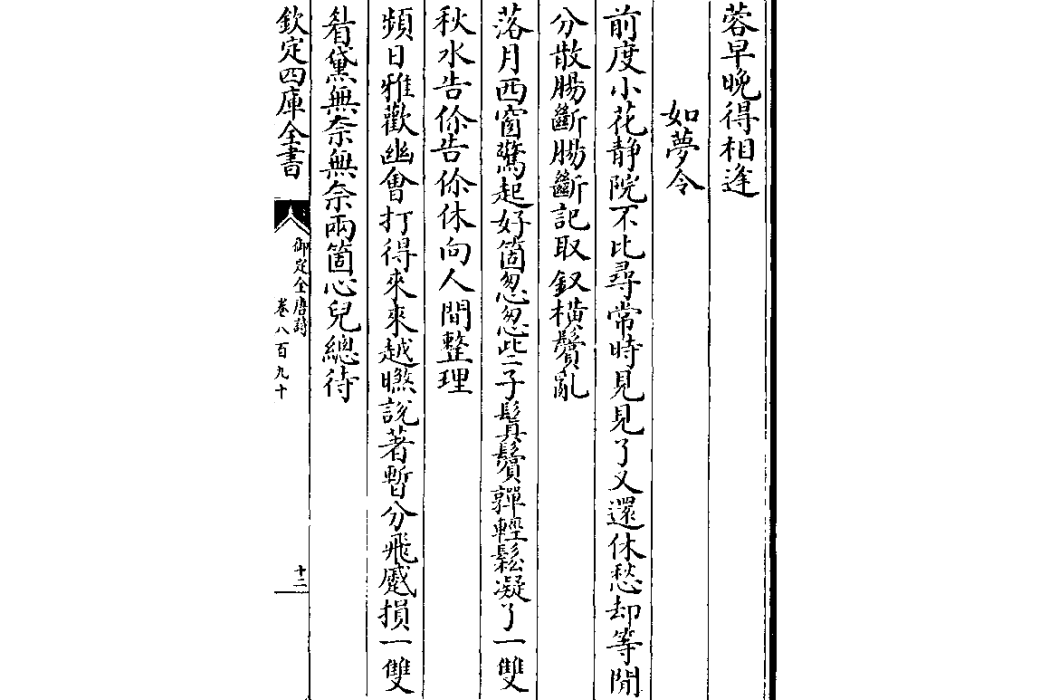 蓉早晚得相逢
如夢令
前度小花静院不比尋常時見見了又還休愁却等閒
分散腸斷腸斷記取釵橫鬢亂
落月西窗驚起好箇怱怱些子鬒鬢嚲輕鬆凝了一雙
秋水告你告你休向人間整理
頻日雅歡幽會打得來來越說著暫分飛蹙損一雙
眉黛無奈無奈兩箇心兒總待
欽定四庫全書
御定全唐詩
卷八百九十
十二